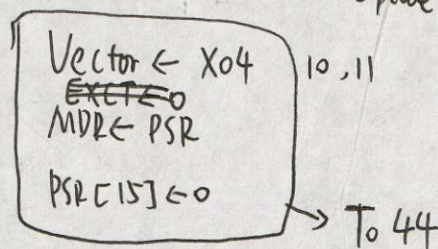 Vector ← x04
EXCT ← 0
MDR ← PSR
PSR[15] ← 0
10, 11
To 44